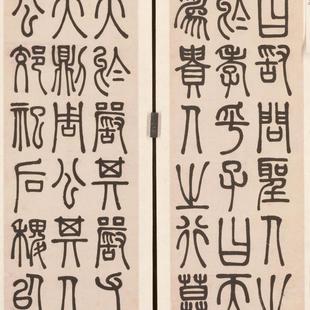 曰敢問聖人之
於孝乎子曰天
為貴人之行莫
大於嚴其嚴父
天則周公其人
公郊祀后稷以